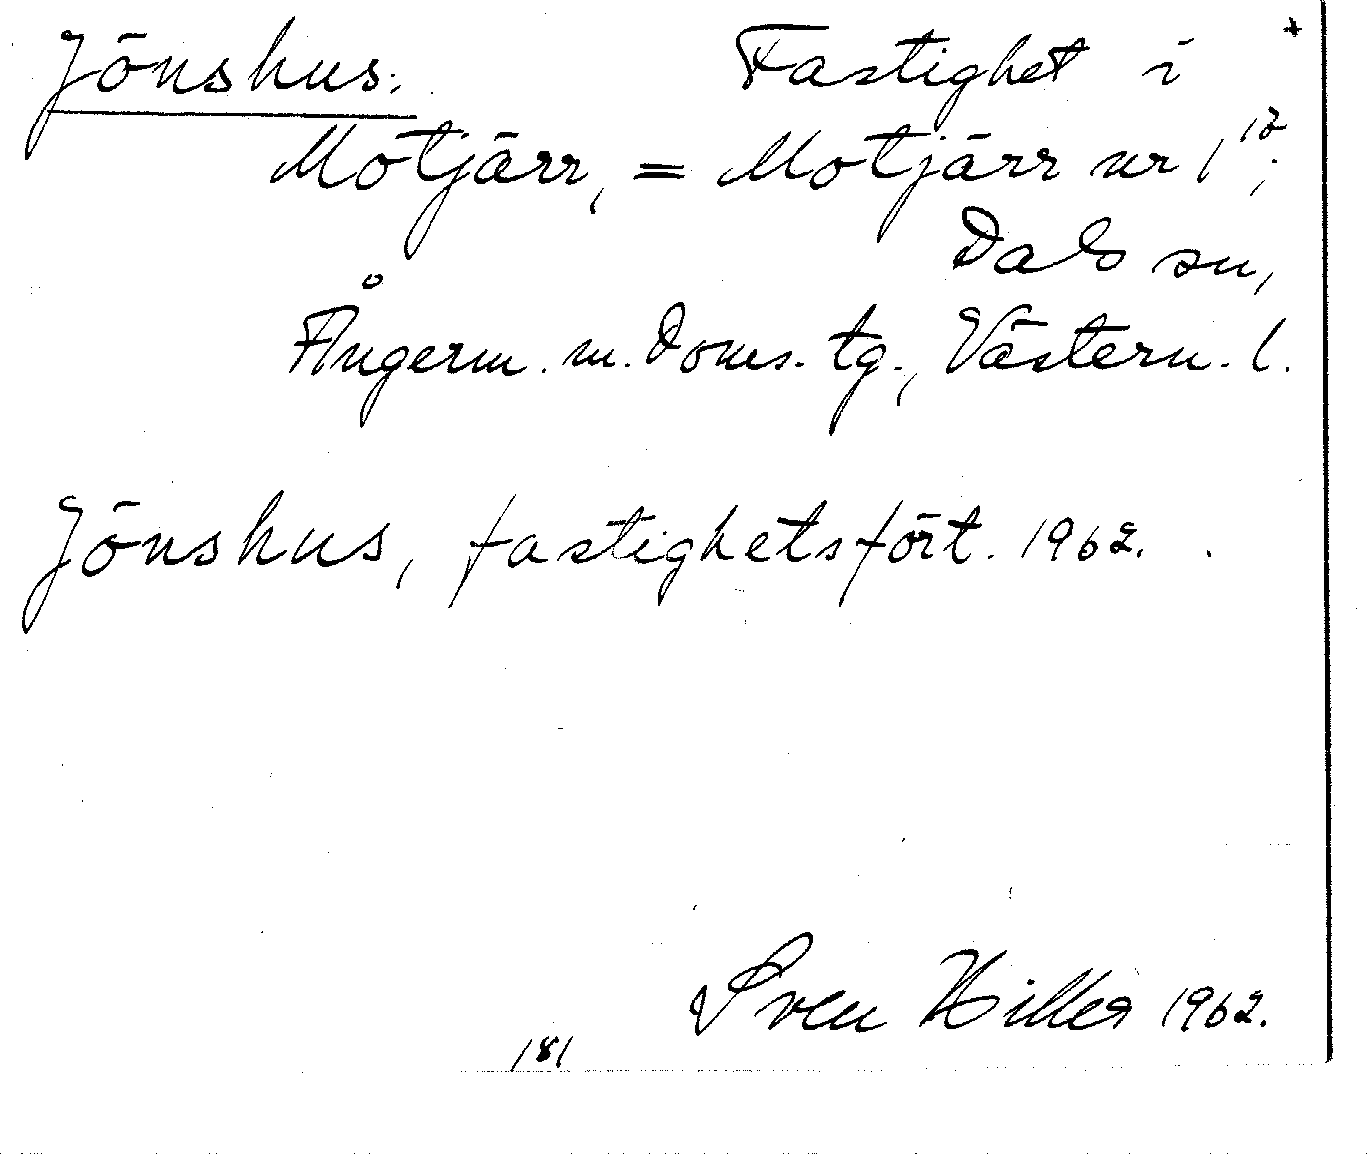 Jönshus. Fastighet i +
Motjärr, = Motjärr nr 1
Dals sn,
Ångerm. m. doms. tg., Västern. l.
Jönshus, fastighetsfört. 1962.
Sven Hiller 1962.
181